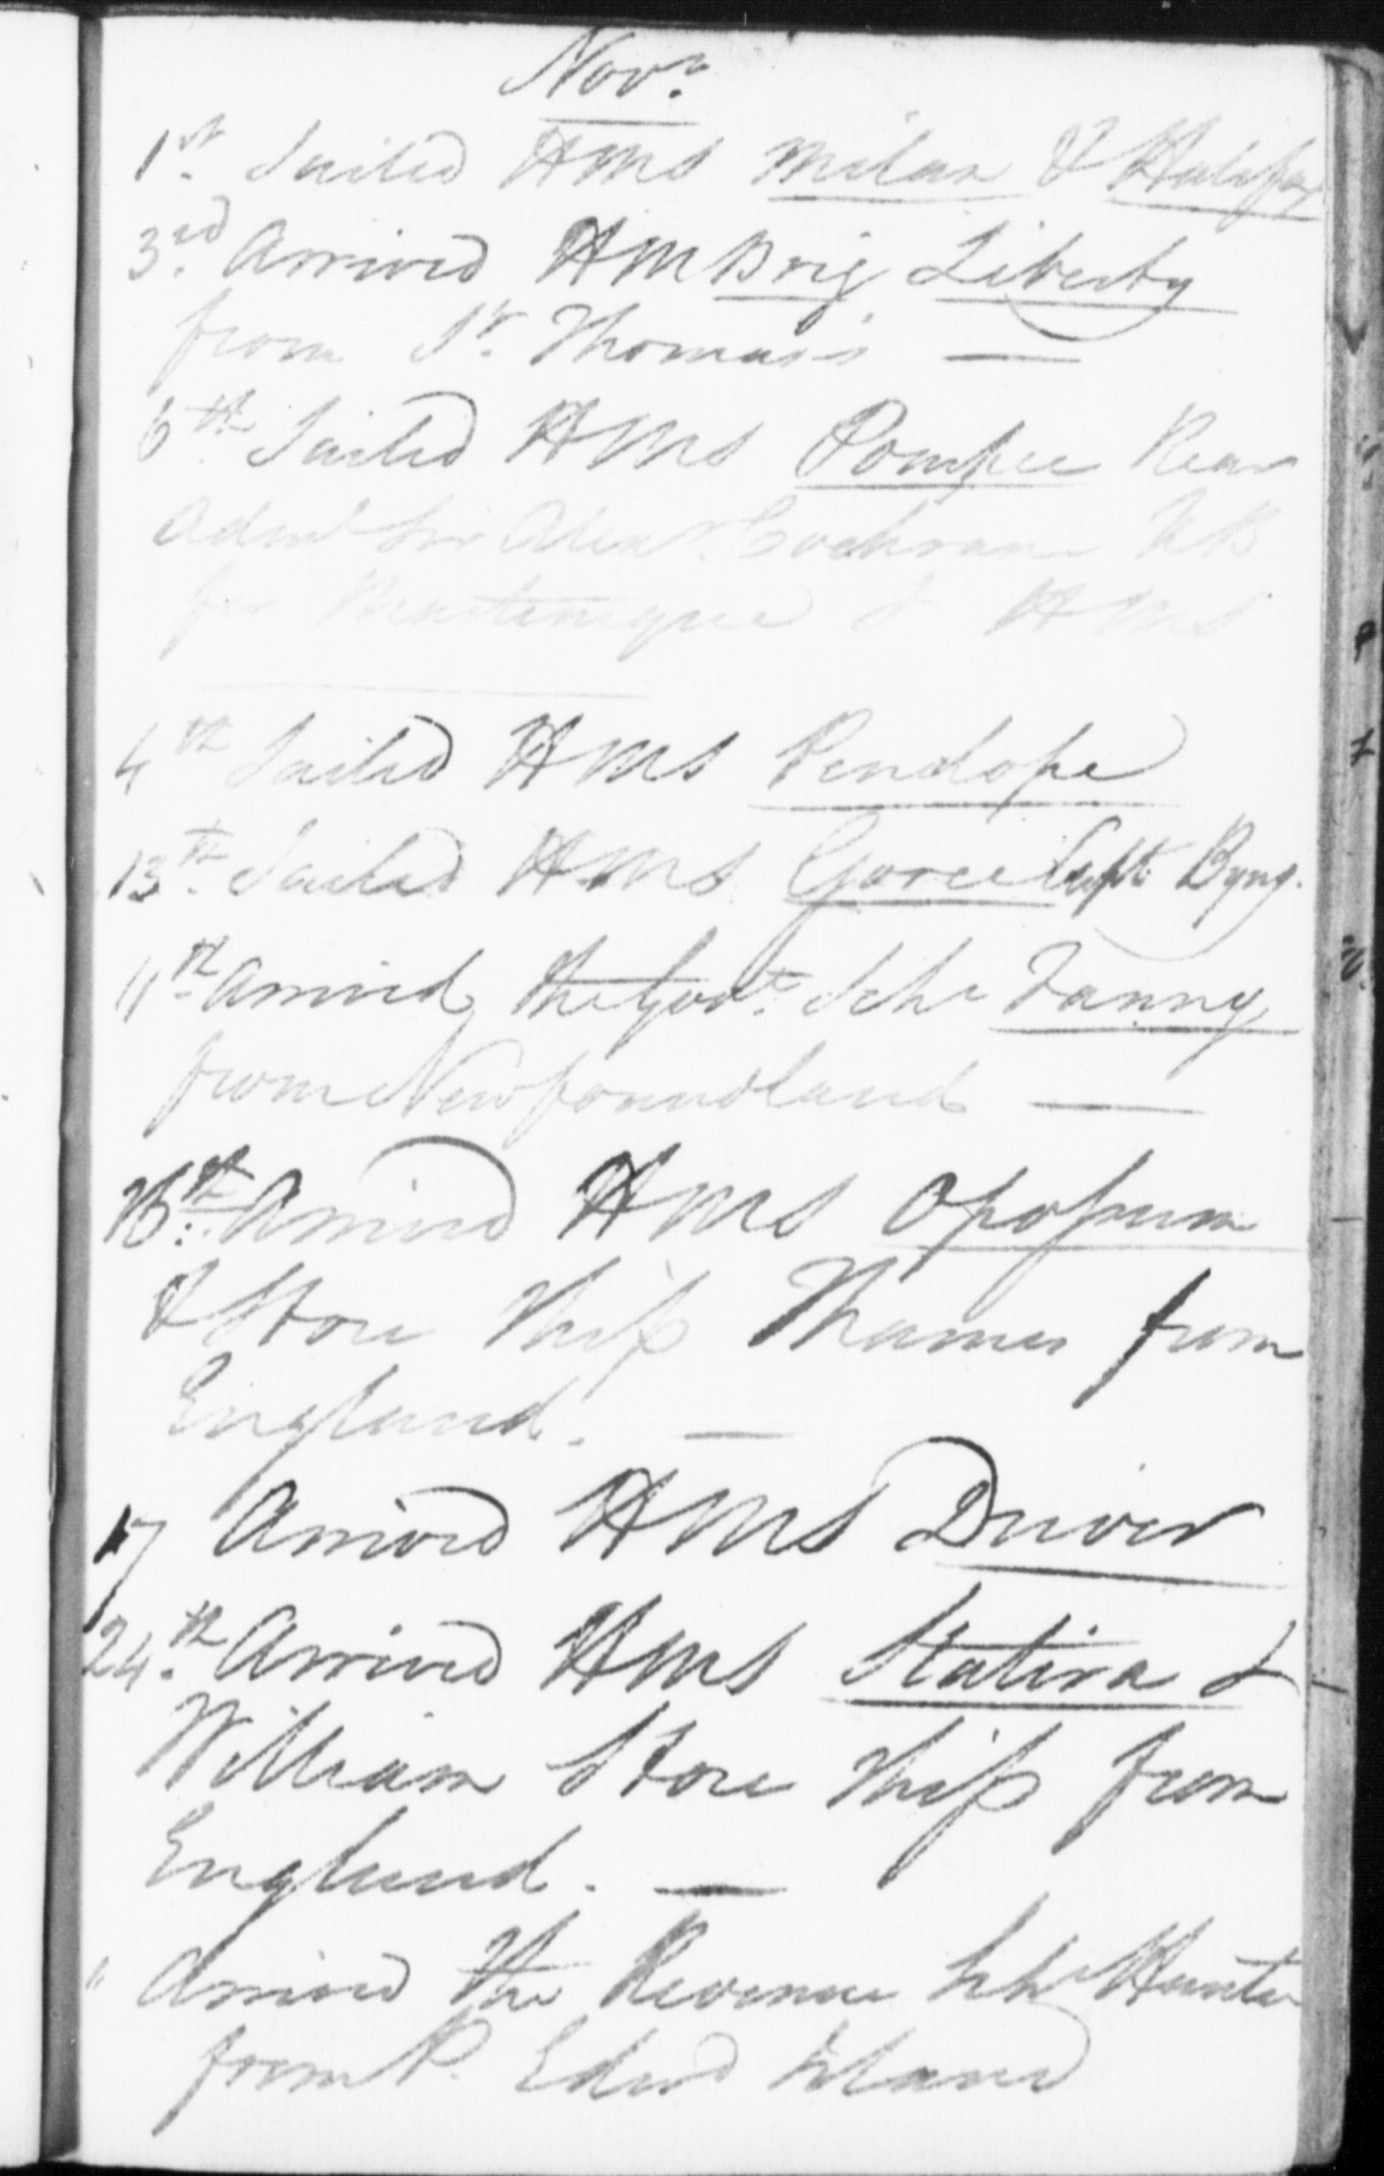 Novr.
1st. Sailed HMS Milan & Halifax
3rd. Arrived HM Brig Liberty
from St. Thomas's —
6th. Sailed HMS Pompee Rear
Adml Sir Alexr. Cochrane KB
for Martinique & HMS
4th Sailed HMS Penelope
13th. Sailed HMS Goree Capt Byng.
11th. Arrived the Govt. Schr Fanny
from Newfoundland —
16th. Arrived HMS Opossum
& Store Ship Thames from
England. —
17 Arrived HMS Driver
24th. Arrived HMS Statira &
William Store Ship from
England. —
" Arrived the Revenue Schr Hunter
from P. Edwd Island